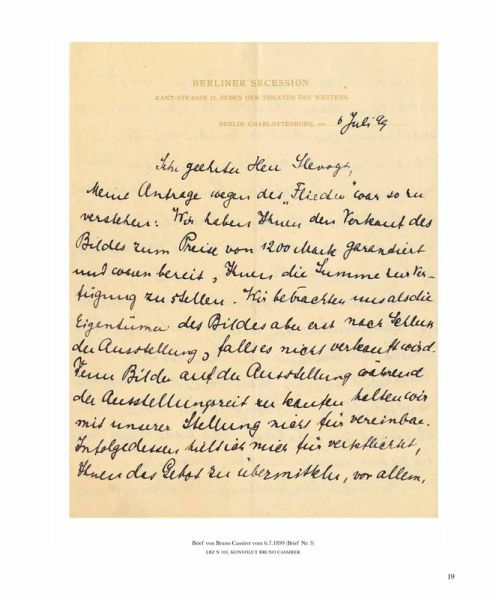 BERLINER SECESSION
KANT-STRASSE 12, NEBEN DEM THEATER DES WESTENS.
BERLIN-CHARLOTTENBURG, DEN 6 Juli 99
Sehr geehrter Herr Slevogt,
Meine Anfrage wegen des „Flieder" war so zu
verstehen: Wir haben Ihnen den Verkauf des
Bildes zum Preise von 1200 Mark garantiert
und waren bereit, Ihnen die Summe zur Ver-
fügung zu stellen. Wir betrachten uns als die
Eigentümer des Bildes aber erst nach Schluss
der Ausstellung, falls es nicht verkauft wird.
Denn Bilder auf der Ausstellung während
der Ausstellungszeit zu kaufen halten wir
mit unserer Stellung nicht für vereinbar.
Infolgedessen hielt ich mich für verpflichtet,
Ihnen das Gebot zu übermitteln, vor allem,
Brief von Bruno Cassirer vom 6.7.1899 (Brief Nr. 3)
LBZ N 100, KONVOLUT BRUNO CASSIRER
19